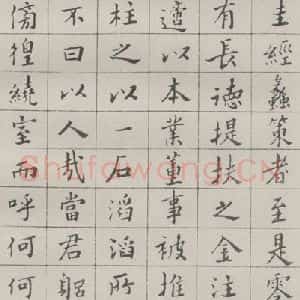 圭經蠡策者至是零
有長德提扶之金注
遵以本業董事被推
柱之以一石滔滔所
不曰以人哉當君躬
傍徨繞室而呼何何
Shufawang.CN